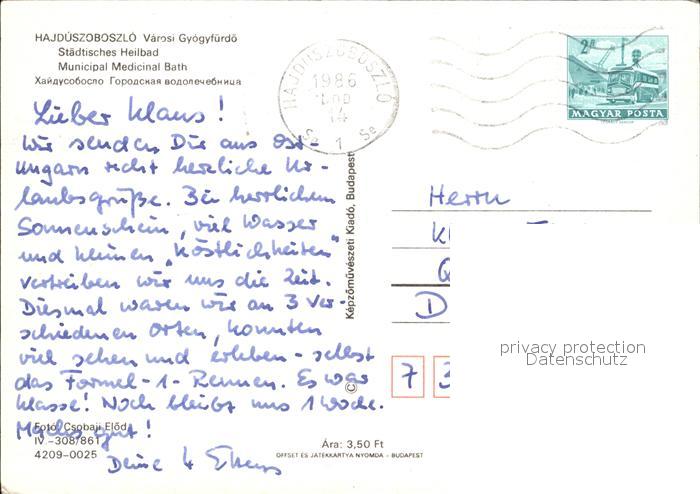 HAJDÚSZOBOSZLÓ Városi Gyógyfürdő
Städtisches Heilbad
Municipal Medicinal Bath
Хайдусобосло Городская водолечебница
HAJDÚSZOBOSZLÓ
1986
14
1
2Ft
MAGYAR POSTA
Lieber Klaus!
Wir senden Dir aus Ost-
Ungarn recht herzliche Ur-
laubsgrüße. Bei herrlichem
Sonnenschein, viel Wasser
und kleinen "Köstlichkeiten"
vertreiben wir uns die Zeit.
Diesmal waren wir an 3 ver-
schiedenen Orten, konnten
viel sehen und erleben - selbst
das Formel-1-Rennen. Es war
klasse! Noch bleibt uns 1 Woche.
Machs gut!
Deine 4
Foto: Csobaji Előd
IV.-308/861
4209-0025
Ára: 3,50 Ft
OFFSET ÉS JÁTÉKKÁRTYA NYOMDA - BUDAPEST
© Képzőművészeti Kiadó, Budapest
Herrn
K
D
7 3
privacy protection
Datenschutz